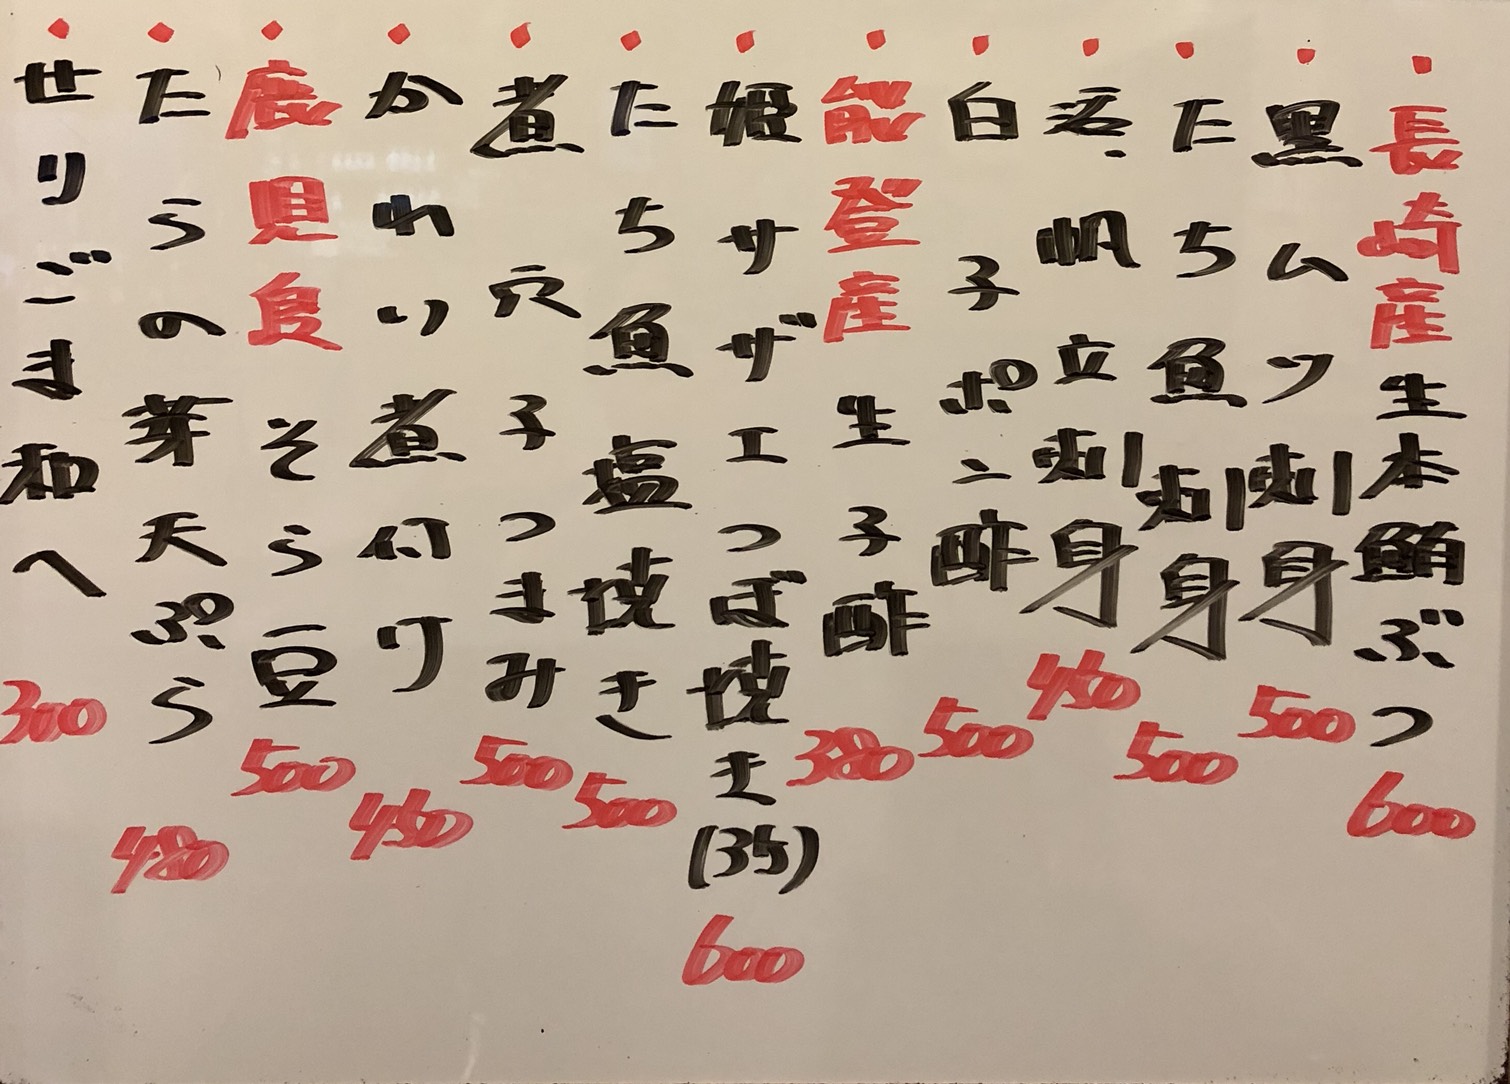 ・長崎産生本鮪ぶつ 600
・黒ムツ刺身 500
・たち魚刺身 500
・帆立刺身 450
・白子ポン酢 500
・能登産生子酢 380
・姫サザエつぼ焼き(35) 600
・たち魚塩焼き 500
・煮穴子つまみ 500
・かれい煮付け 450
・鹿児島そら豆 500
・たらの芽天ぷら 480
・せりごま和へ 300